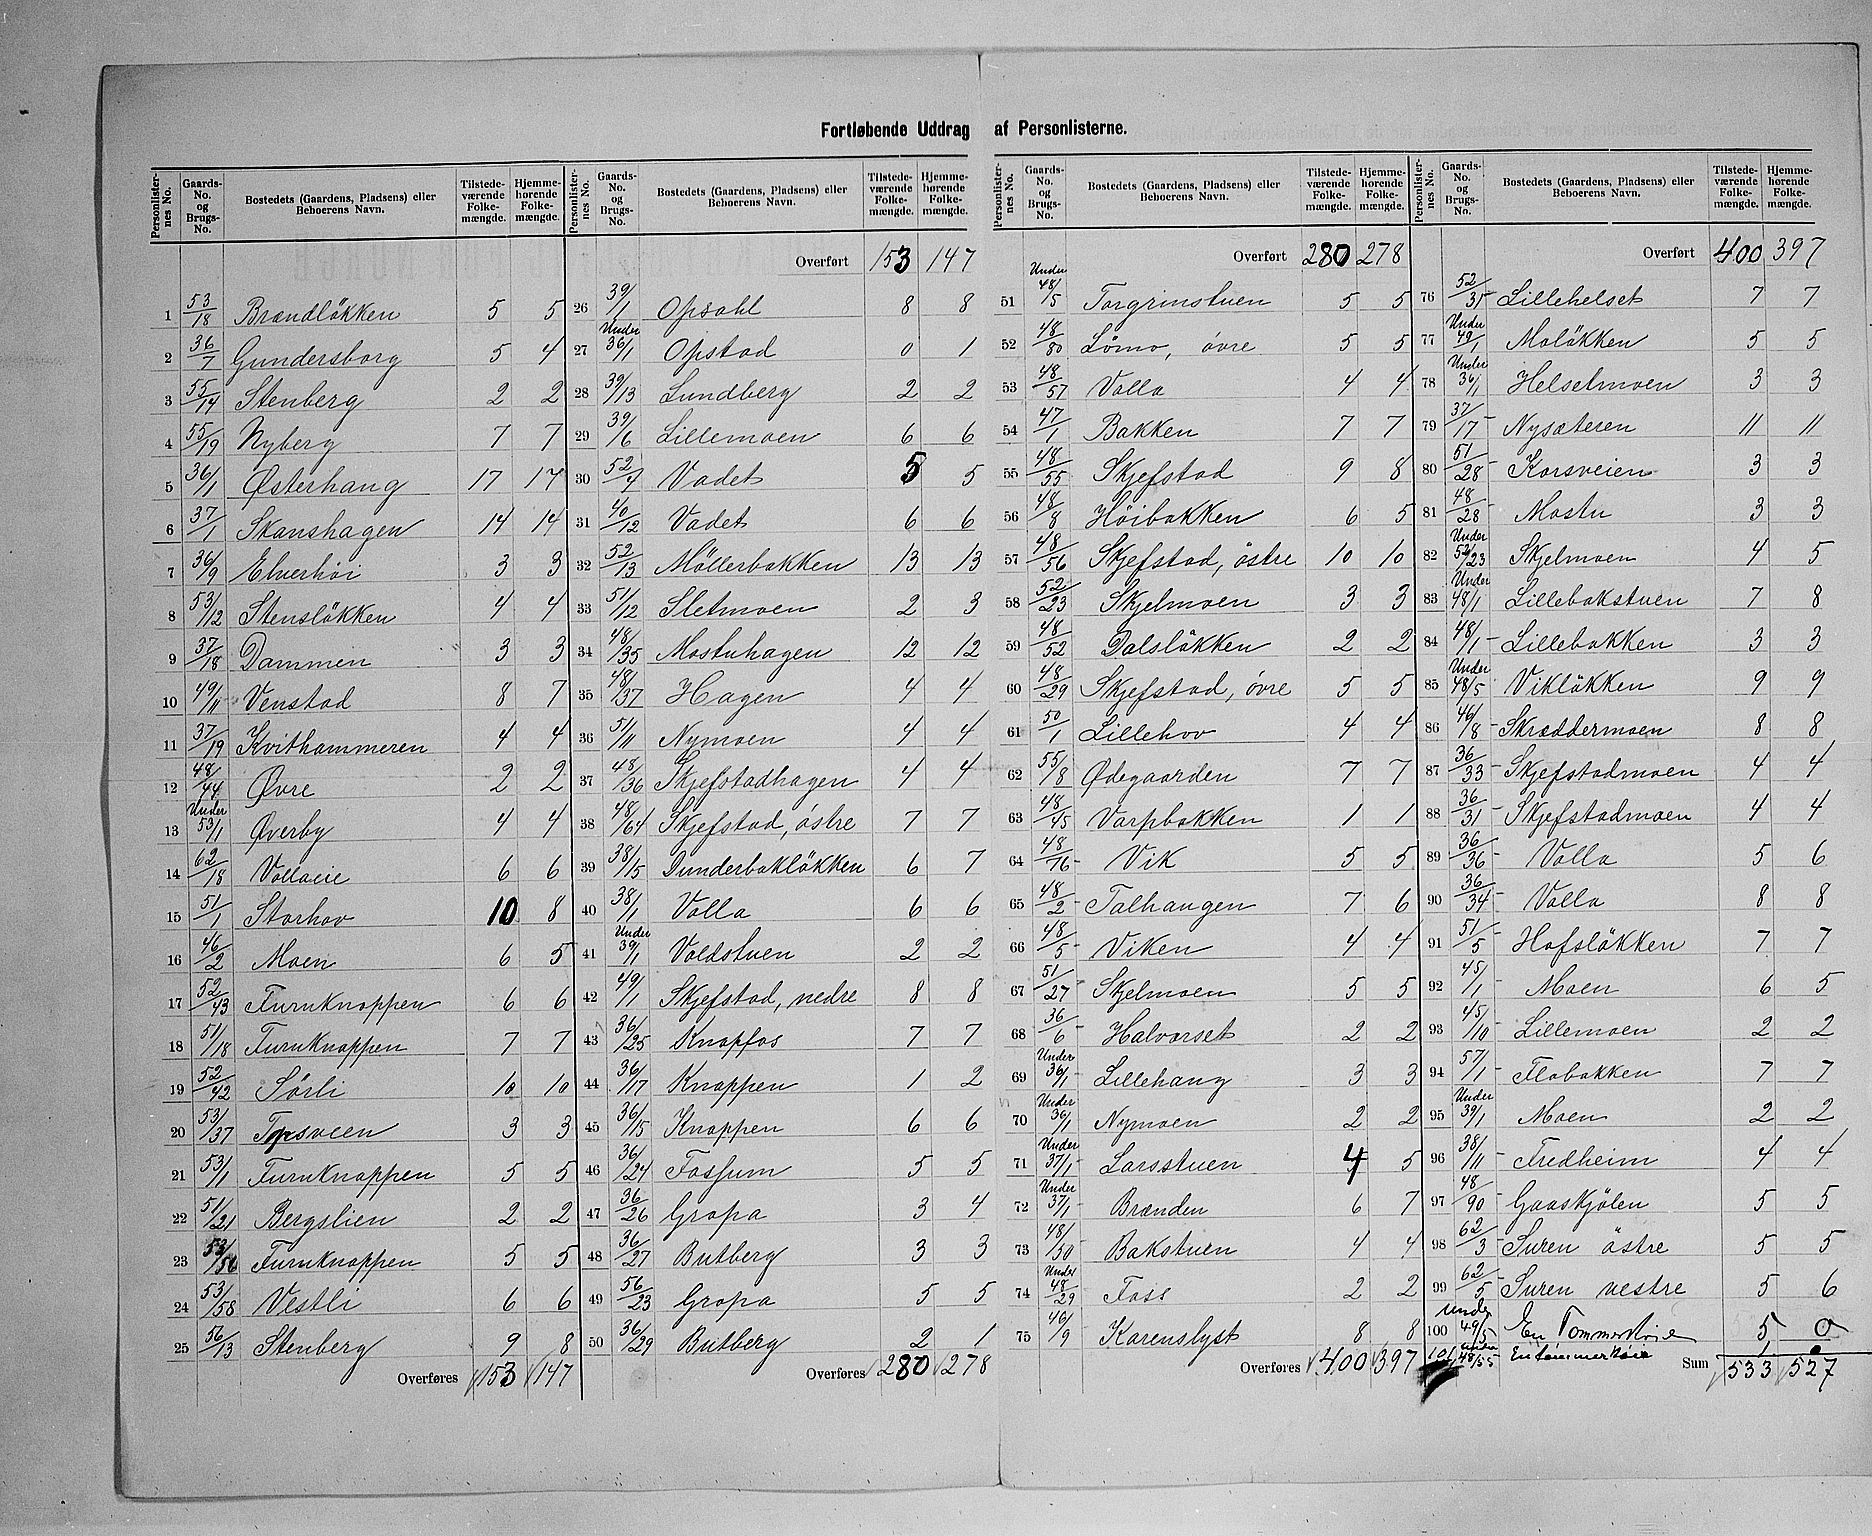 Fortløbende Uddrag af Personlisterne.
Personlister-nes No. | Gaards-No. og Brugs-No. | Bostedets (Gaardens, Pladsens) eller Beboerens Navn. | Tilstede-værende Folke-mængde. | Hjemme-hørende Folke-mængde.
1 53/18 Brændløkken 5 5
2 36/7 Gundersborg 5 4
3 55/14 Stenberg 2 2
4 55/19 Nyberg 7 7
5 36/1 Østerhang 17 17
6 37/1 Skanshagen 14 14
7 36/9 Elverhöi 3 3
8 53/12 Stensløkken 4 4
9 37/18 Dammen 3 3
10 49/11 Venstad 8 7
11 37/19 Kvithammeren 4 4
12 48/44 Øvre 2 2
13 Under 53/1 Øverby 4 4
14 62/18 Vollaeie 6 6
15 51/1 Storhov 10 8
16 46/2 Moen 6 5
17 52/43 Furuknappen 6 6
18 51/18 Furuknappen 7 7
19 52/42 Sörli 10 10
20 53/37 Torsveen 3 3
21 53/1 Furuknappen 5 5
22 51/21 Bergslien 2 2
23 53/56 Furuknappen 5 5
24 53/58 Vestli 6 6
25 56/13 Stenberg 9 8
Overføres 153 147
Personlister-nes No. | Gaards-No. og Brugs-No. | Bostedets (Gaardens, Pladsens) eller Beboerens Navn. | Tilstede-værende Folke-mængde. | Hjemme-hørende Folke-mængde.
Overført 153 147
26 39/1 Opsahl 8 8
27 Under 36/1 Opstad 0 1
28 39/13 Lundberg 2 2
29 39/6 Lillemoen 6 6
30 52/7 Vadet 5 5
31 40/12 Vadet 6 6
32 52/13 Möllerbakken 13 13
33 51/12 Sletmoen 2 3
34 48/135 Mostuhagen 12 12
35 48/37 Hagen 4 4
36 51/11 Nymoen 4 4
37 48/36 Skjefstadhagen 4 4
38 48/64 Skjefstad, östre 7 7
39 38/15 Dunderbakløkken 6 7
40 38/1 Volla 6 6
41 Under 39/1 Voldstuen 2 2
42 49/1 Skjefstad, nedre 8 8
43 36/25 Knapfos 7 7
44 36/17 Knappen 1 2
45 36/15 Knappen 6 6
46 36/24 Fossum 5 5
47 36/26 Gropa 3 4
48 36/27 Butberg 3 3
49 56/23 Gropa 5 5
50 36/29 Butberg 2 1
Overføres 280 278
Personlister-nes No. | Gaards-No. og Brugs-No. | Bostedets (Gaardens, Pladsens) eller Beboerens Navn. | Tilstede-værende Folke-mængde. | Hjemme-hørende Folke-mængde.
Overført 280 278
51 Under 48/5 Torgrimstuen 5 5
52 48/80 Lömo, övre 5 5
53 48/57 Volla 4 4
54 47/1 Bakken 7 7
55 48/55 Skjefstad 9 8
56 48/8 Höibakken 6 5
57 48/56 Skjefstad, östre 10 10
58 52/23 Skjelmoen 3 3
59 48/52 Dalsløkken 2 2
60 48/29 Skjefstad, övre 5 5
61 50/1 Lillehov 4 4
62 55/8 Ødegaarden 7 7
63 48/45 Varpbakken 1 1
64 48/76 Vik 5 5
65 48/2 Talhaugen 7 6
66 48/5 Viken 4 4
67 51/27 Skjelmoen 5 5
68 36/6 Halvorset 2 2
69 Under 36/1 Lillehaug 3 3
70 Under 36/1 Nymoen 2 2
71 Under 37/1 Larsstuen 4 5
72 Under 37/1 Brænden 6 7
73 48/50 Bakstuen 4 4
74 Under 48/29 Foss 2 2
75 46/9 Karenslyst 8 8
Overføres 400 397
Personlister-nes No. | Gaards-No. og Brugs-No. | Bostedets (Gaardens, Pladsens) eller Beboerens Navn. | Tilstede-værende Folke-mængde. | Hjemme-hørende Folke-mængde.
Overført 400 397
76 52/35 Lillehelset 7 7
77 Under 49/1 Moløkken 5 5
78 Under 36/1 Helsetmoen 3 3
79 37/17 Nysæteren 11 11
80 51/28 Korsveien 3 3
81 48/28 Mostu 3 3
82 Under 52/23 Skjelmoen 4 5
83 Under 48/1 Lillebakstuen 7 8
84 48/1 Lillebakken 3 3
85 Under 48/5 Vikløkken 9 9
86 46/8 Skræddermoen 8 8
87 36/33 Skjefstadmoen 4 4
88 36/31 Skjefstadmoen 4 4
89 36/36 Volla 5 6
90 36/34 Volla 8 8
91 51/5 Hofsløkken 7 7
92 45/1 Moen 6 5
93 45/10 Lillemoen 2 2
94 57/1 Flobakken 7 7
95 Under 39/1 Moen 2 2
96 38/11 Fredheim 4 4
97 48/90 Gaaskjølen 5 5
98 62/3 Suren östre 5 5
99 62/5 Suren vestre 5 6
100 under 49/5 En Tommerkoie 5 0
101 under 48/55 En tömmerkoie 1 0
Sum 533 527